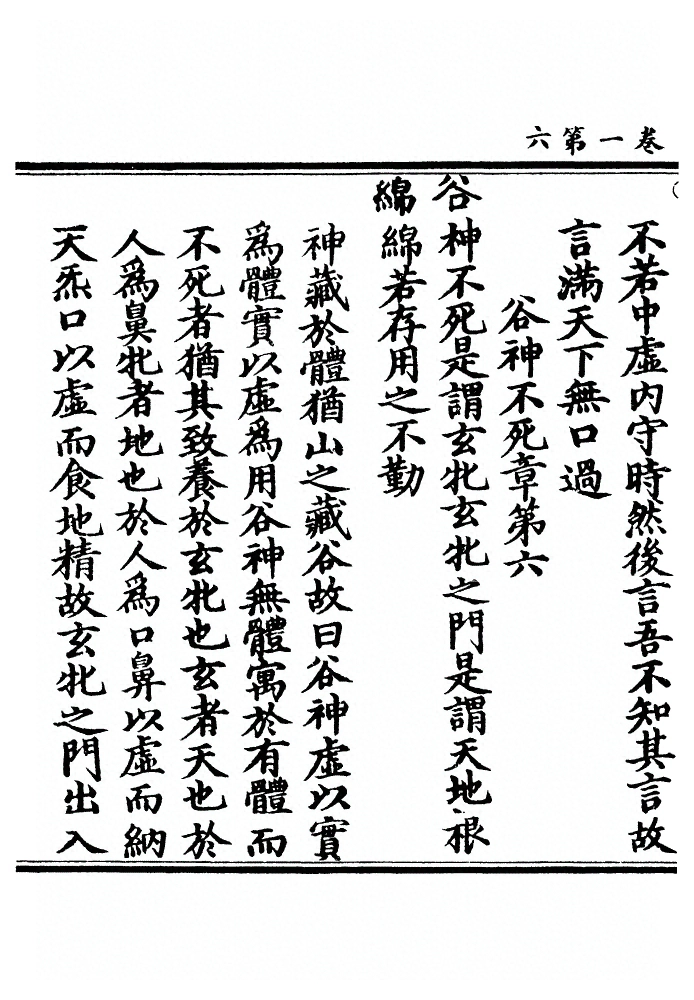 卷一第六
不若中虛內守時然後言吾不知其言故
言滿天下無口過
谷神不死章第六
谷神不死是謂玄牝玄牝之門是謂天地根
綿綿若存用之不勤
神藏於體猶山之藏谷故曰谷神虛以實
為體實以虛為用谷神無體寓於有體而
不死者猶其致養於玄牝也玄者天也於
人為鼻牝者地也於人為口鼻以虛而納
天炁口以虛而食地精故玄牝之門出入